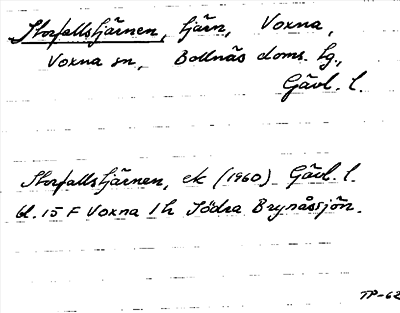 Storfallstjärnen, tjärn, Voxna,
Voxna sn, Bollnäs doms. hg.,
Gävl. l.
Storfallstjärnen, ek (1960) Gävl. l.
bl. 15 F Voxna 1 h Södra Brynåssjön.
TP-62